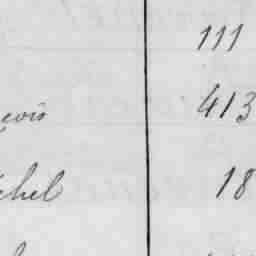 111
ewis 413
chel 18